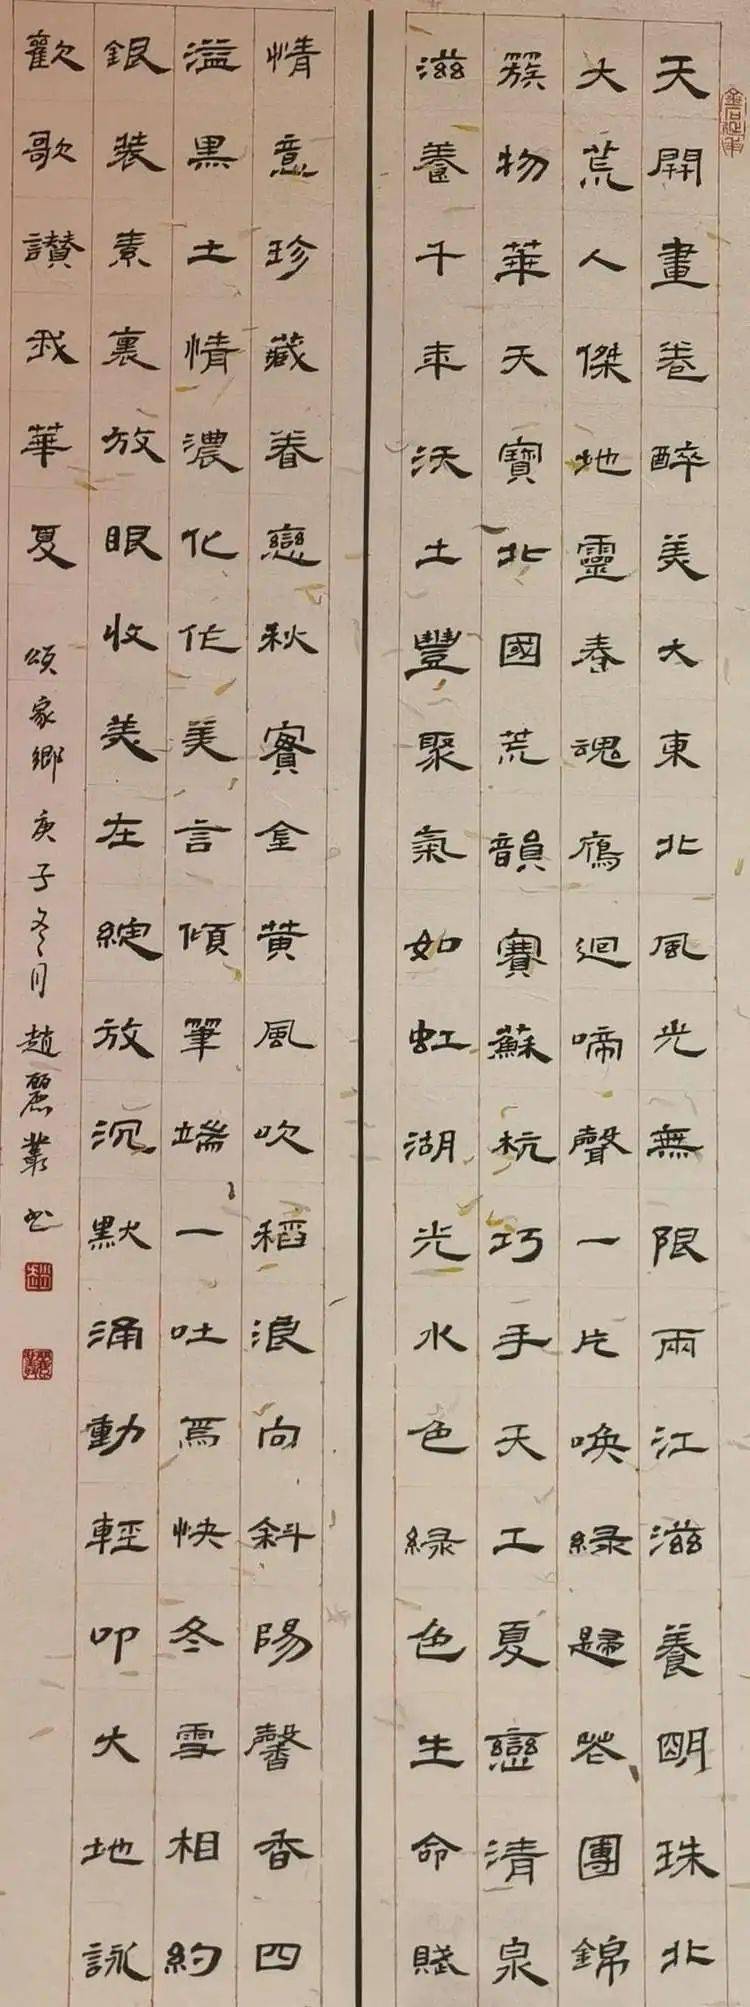 天開畫卷醉美大東北風光無限兩江滋養明珠北
大荒人傑地靈春魂鴈迴啼聲一片喚綠歸花團錦
簇物華天寶北國荒韻賽蘇杭巧手天工夏戀清泉
滋養千年沃土豐聚氣如虹湖光水色綠色生命賦
情意珍藏眷戀秋實金黄風吹稻浪向斜陽馨香四
溢黑土情濃化作美言傾筆端一吐爲快冬雪相約
銀装素裹放眼收美在綻放沉默涌動輕叩大地詠
歡歌讃我華夏
頌家鄉庚子冬月趙麗叢书